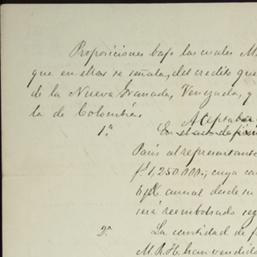 Proposiciones bajo las cuales M.
que en ellas se señala, del credito que
de la Nueva Granada, Venezuela, y
la de Colombia.
1.ª
Pais al representante
f. 1,250.000.; cuya ca
6 p% anual desde su
será reembolsado seg
2.ª La cantidad de f
M.P.H. han vendido